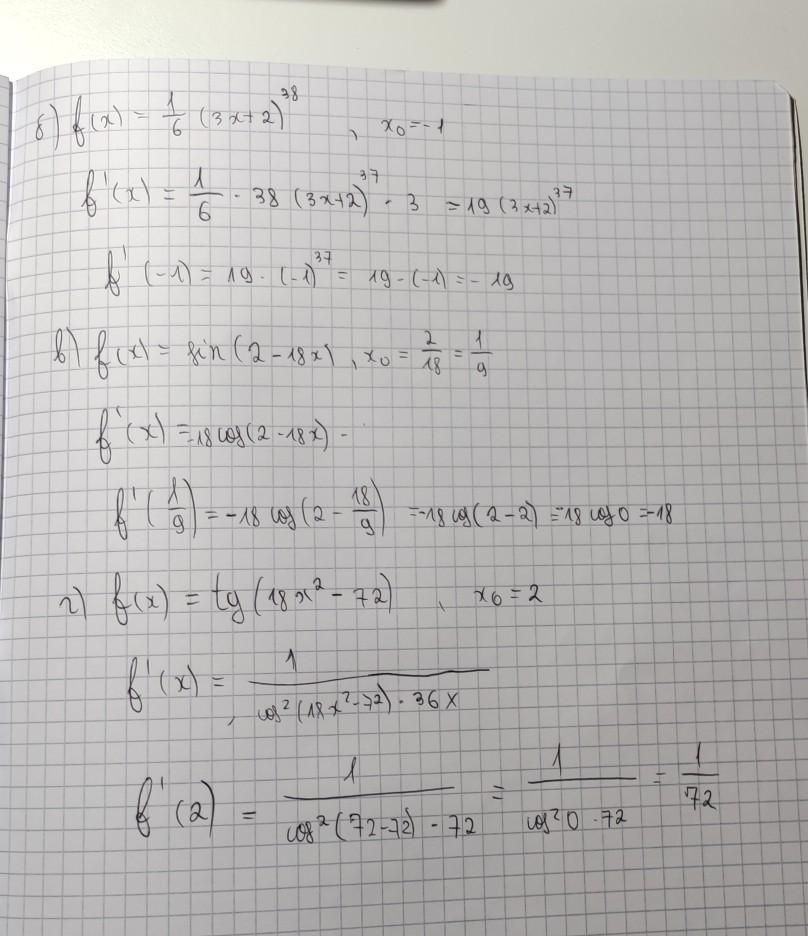 б) f(x) = 1/6 (3x+2)^38 , x₀=-1
f'(x) = 1/6 · 38 (3x+2)^37 · 3 = 19 (3x+2)^37
f'(-1) = 19 · (-1)^37 = 19 · (-1) = - 19
в) f(x) = sin (2-18x) , x₀ = 2/18 = 1/9
f'(x) = -18 cos(2-18x) ·
f'(1/9) = -18 cos(2 - 18/9) = -18 cos(2-2) = -18 cos 0 = -18
г) f(x) = tg (18x² - 72) , x₀ = 2
f'(x) = 1/(cos²(18x²-72) · 36x)
f'(2) = 1/(cos²(72-72) · 72) = 1/(cos²0 · 72) = 1/72